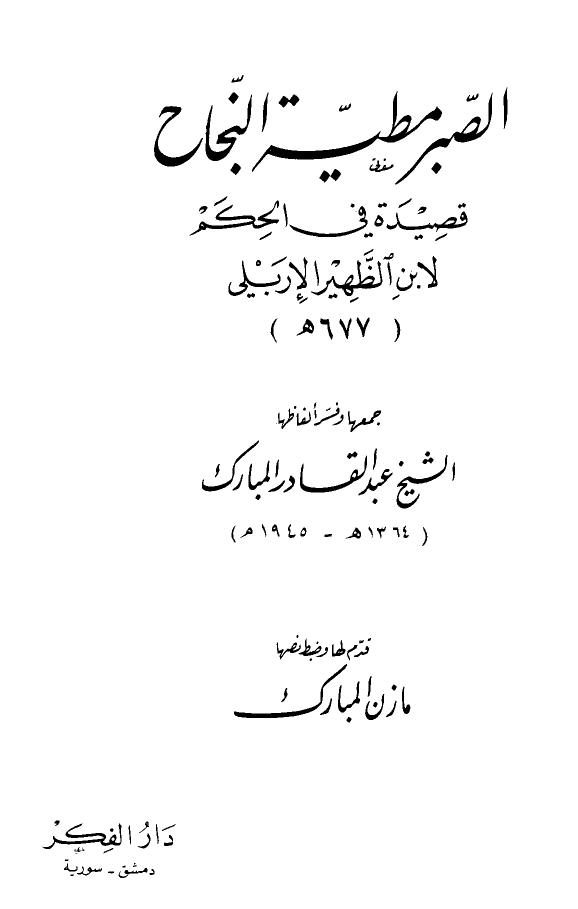 الصّبر مطيّة النّجاح
قصِيْدَة في الحِكَمْ
لابنِ الظَّهِيْر الإرْبَيْلى
( ٦٧٧ هـ )
جمعها وفسّر ألفاظها
الشيخ عبد القادر المبارك
( ١٣٦٤ هـ - ١٩٤٥ م )
قدّم لها وضبط نصها
مازن المبارك
دَارُ الفِكِر
دمشق - سورية